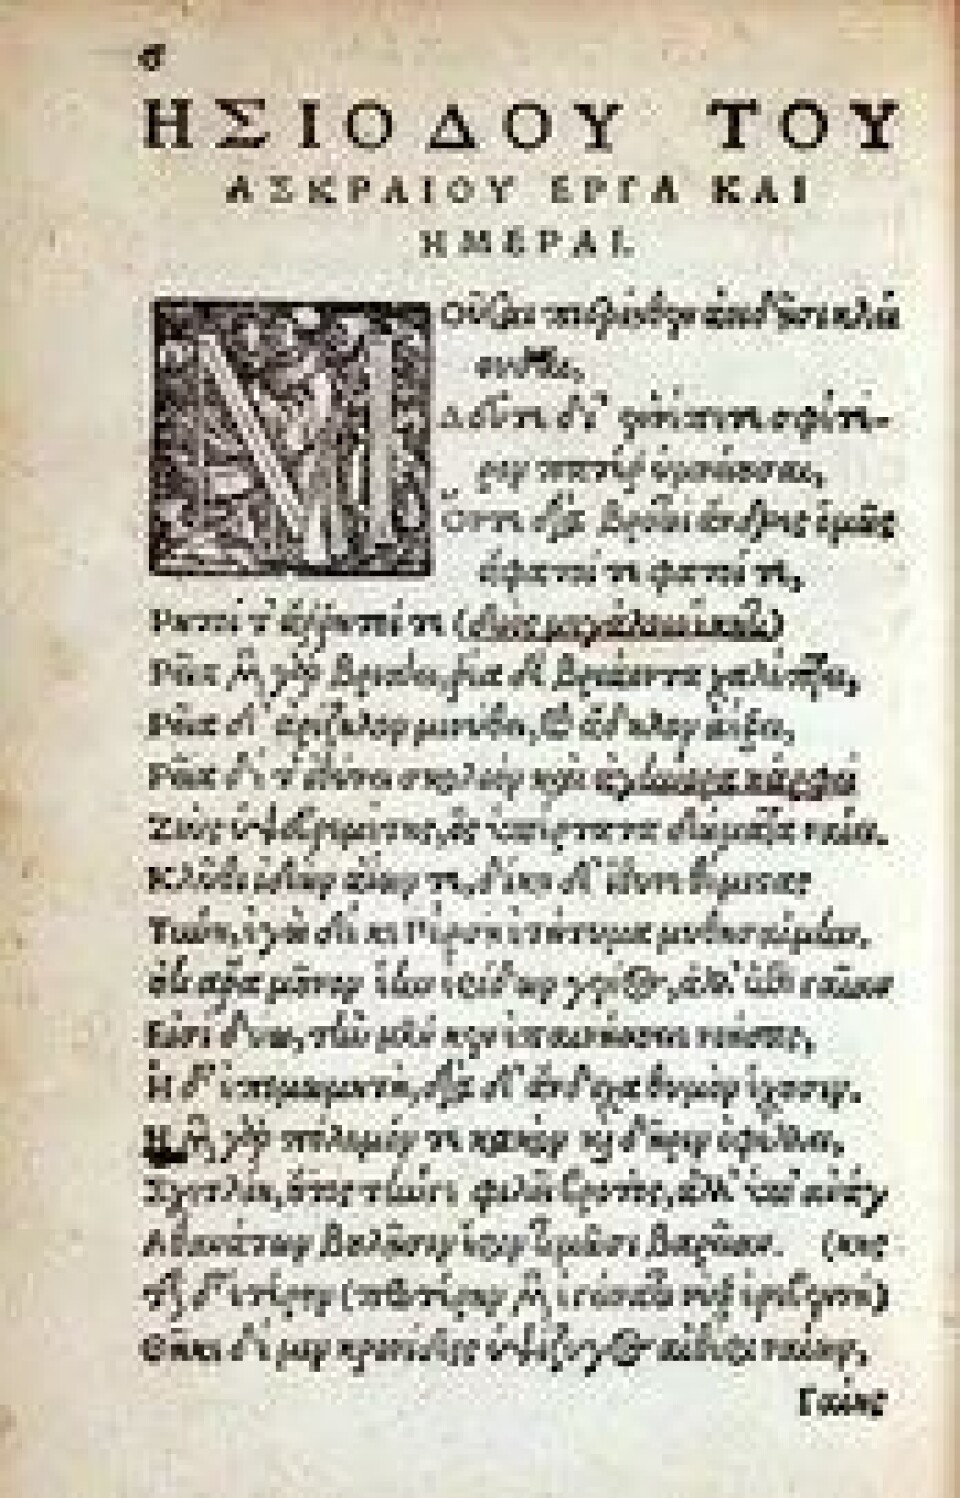 ΗΣΙΟΔΟΥ ΤΟΥ
ΑΣΚΡΑΙΟΥ ΕΡΓΑ ΚΑΙ
ΗΜΕΡΑΙ.
Οῦσαι πιερίηθεν ἀοιδῇσι κλεί
ουσαι,
Δεῦτε δὴ ἐννέπετε σφέτε-
ρον πατέρ ὑμνείουσαι,
Ὅντε διὰ βροτοὶ ἄνδρες ὁμῶς
ἄφατοί τε φατοί τε,
Ρητοί τ' ἄρρητοί τε (διὸς μεγάλοιο ἕκητι)
Ρεῖα μὲν γὰρ βριάει, ῥεῖα δὲ βριάοντα χαλέπτει,
Ρεῖα δ' ἀρίζηλον μινύθει, καὶ ἄδηλον ἀέξει,
Ρεῖα δέ τ' ἰθύνει σκολιὸν καὶ ἀγήνορα κάρφει
Ζεὺς ὑψιβρεμέτης, ὃς ὑπέρτατα δώματα ναίει.
Κλῦθι ἰδὼν ἀίων τε, δίκῃ δ' ἴθυνε θέμιστας
Τύνη, ἐγὼ δέ κε Πέρσῃ ἐτήτυμα μυθησαίμην.
Οὐκ ἄρα μοῦνον ἔην ἐρίδων γένος, ἀλλ' ἐπὶ γαῖαν
Εἰσὶ δύω, τὴν μέν κεν ἐπαινήσειε νοήσας,
Ἡ δ' ἐπιμωμητή, διὰ δ' ἄνδιχα θυμὸν ἔχουσιν.
Ἡ μὲν γὰρ πόλεμόν τε κακὸν καὶ δῆριν ὀφέλλει,
Σχετλίη, οὔτις τήνγε φιλεῖ βροτός, ἀλλ' ὑπ' ἀνάγ
Ἀθανάτων βουλῇσιν ἔριν τιμῶσι βαρεῖαν. (κης
Τὴν δ' ἑτέρην (προτέρην μὲν ἐγείνατο νὺξ ἐρεβεννὴ)
Θῆκε δέ μιν κρονίδης ὑψίζυγος αἰθέρι ναίων,
Γαίης